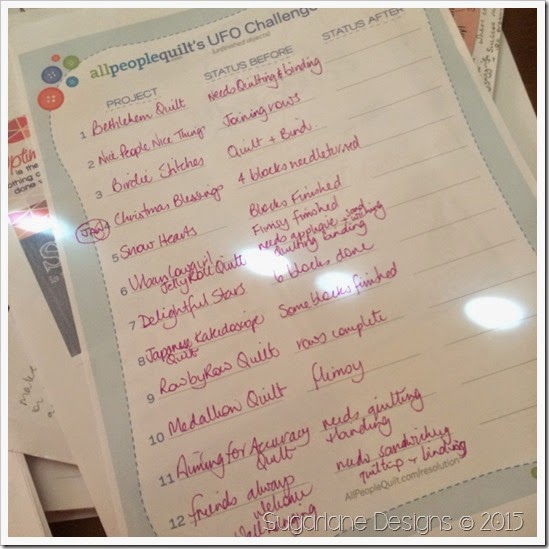 allpeoplequilt's UFO Challenge
(unfinished objects)
PROJECT STATUS BEFORE STATUS AFTER
1 Bethlehem Quilt needs Quilting & binding
2 Nice People Nice Things Joining rows
3 Birdie Stitches Quilt + Bind
JAN 4 Christmas Blessings 4 blocks needleturned
5 Snow Hearts Blocks Finished
6 Urban Cowgirl Flimsy Finished
Jelly Roll Quilt needs applique + sandwiching
quilting binding
7 Delightful Stars 6 blocks done
8 Japanese Kaleidoscope Some blocks finished
Quilt
9 Row by Row Quilt rows complete
10 Medallion Quilt flimsy
11 Aiming for Accuracy needs quilting
Quilt + binding
12 Friends always needs sandwiching
welcome quilting + binding
Wallhanging
AllPeopleQuilt.com/resolution
Sugarlane Designs © 2015